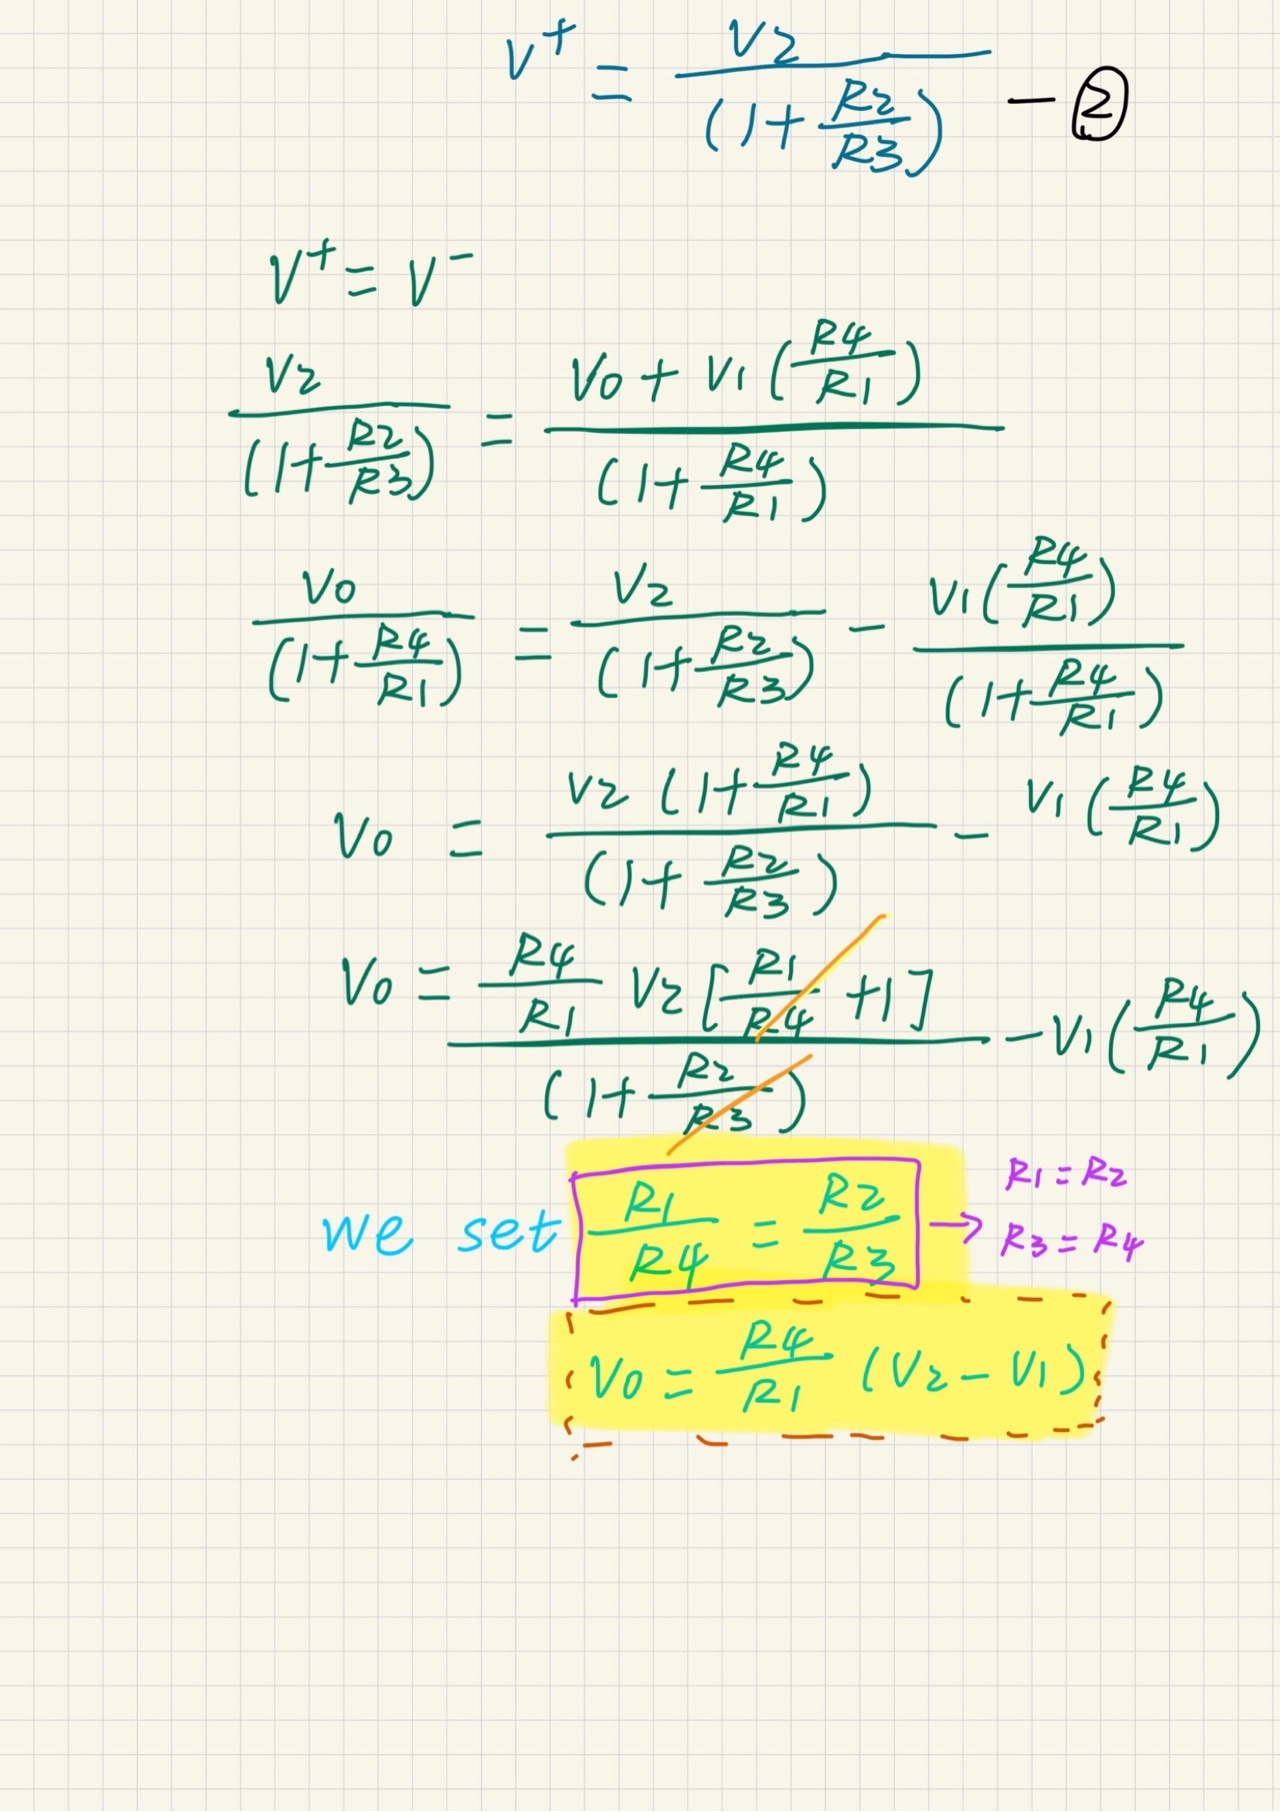 V⁺ = V2 / (1 + R2/R3) — ②
V⁺ = V⁻
V2 / (1 + R2/R3) = (Vo + V1 (R4/R1)) / (1 + R4/R1)
Vo / (1 + R4/R1) = V2 / (1 + R2/R3) − V1 (R4/R1) / (1 + R4/R1)
Vo = V2 (1 + R4/R1) / (1 + R2/R3) − V1 (R4/R1)
Vo = R4/R1 V2 [R1/R4 + 1] / (1 + R2/R3) − V1 (R4/R1)
we set R1/R4 = R2/R3 → R1 = R2
R3 = R4
Vo = R4/R1 (V2 − V1)